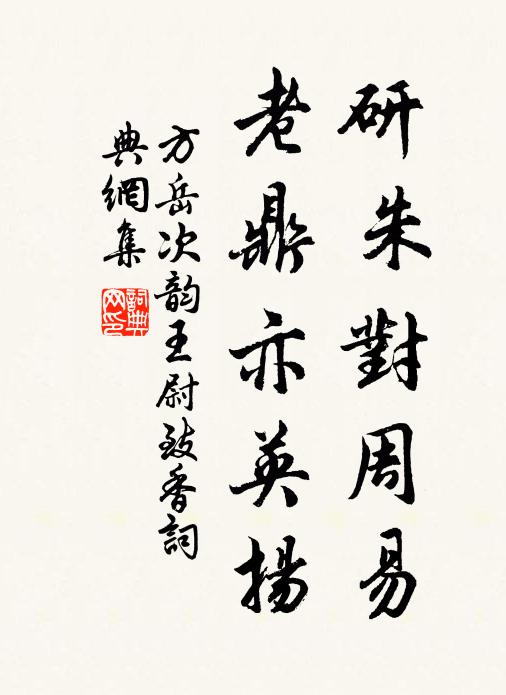 研朱對周易
老鼎亦英揚
方岳次韵王尉致香詞
典網集
詞典
网印